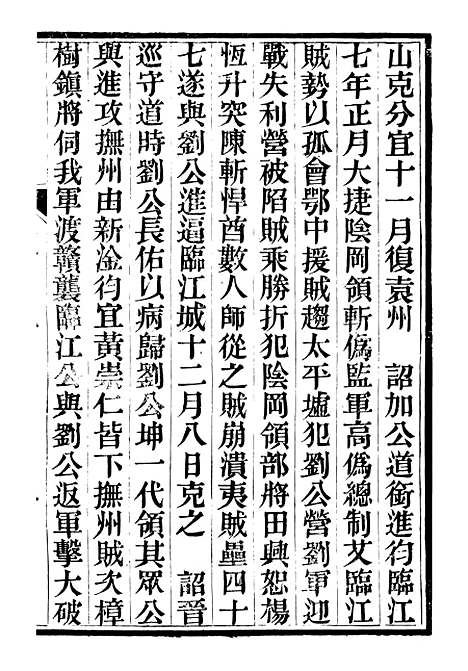 山克分宜十一月復袁州　詔加公道銜進征臨江
七年正月大捷陰岡領斬僞監軍高僞總制艾臨江
賊勢以孤會鄂中援賊趨太平墟犯劉公營劉軍迎
戰失利營被陷賊乘勝折犯陰岡領部將田興恕楊
恆升突陳斬悍酋數人師從之賊崩潰夷賊壘四十
七遂與劉公進逼臨江城十二月八日克之　詔晉
巡守道時劉公長佑以病歸劉公坤一代領其眾公
與進攻撫州由新淦徇宜黃崇仁皆下撫州賊次樟
樹鎮將伺我軍渡贛襲臨江公與劉公返軍擊大破